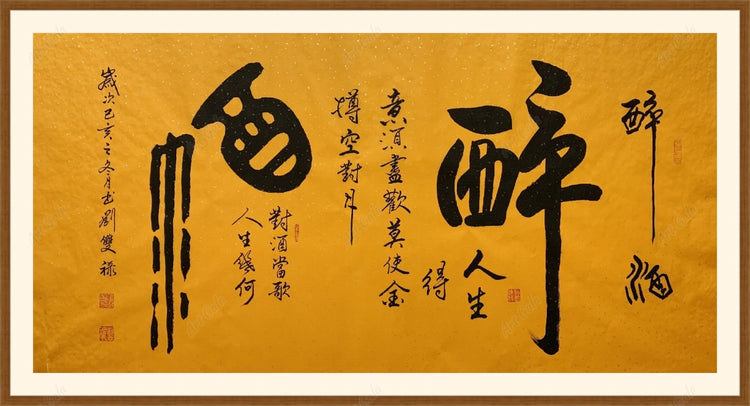 醉酒
醉
人生
得
意須盡歡莫使金
樽空對月
酒
對酒當歌
人生幾何
歲次己亥之冬月書劉雙祿